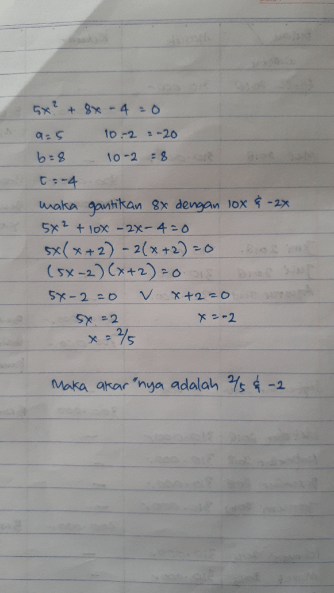 5x² + 8x - 4 = 0
a = 5 10 . -2 = -20
b = 8 10 - 2 = 8
c = -4
Maka gantikan 8x dengan 10x & -2x
5x² + 10x - 2x - 4 = 0
5x (x + 2) - 2(x + 2) = 0
(5x - 2) (x + 2) = 0
5x - 2 = 0 V x + 2 = 0
5x = 2 x = -2
x = 2/5
Maka akar"nya adalah 2/5 & -2